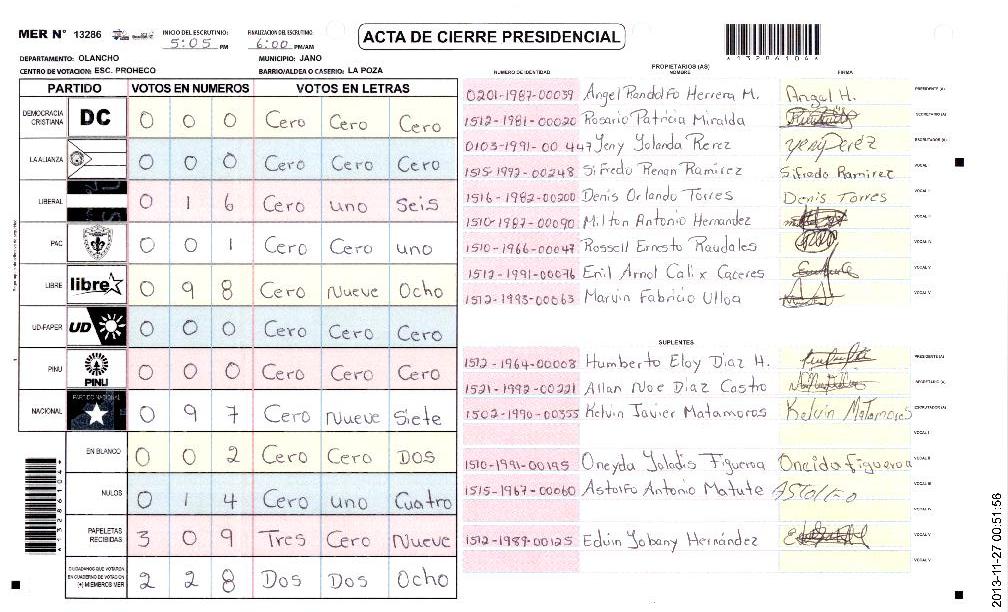 MER N° 13286
INICIO DEL ESCRUTINIO: 5:05 PM
FINALIZACION DEL ESCRUTINIO: 6:00 PM/AM
ACTA DE CIERRE PRESIDENCIAL
DEPARTAMENTO: OLANCHO MUNICIPIO: JANO
CENTRO DE VOTACION: ESC. PROHECO BARRIO/ALDEA O CASERIO: LA POZA
PARTIDO VOTOS EN NUMEROS VOTOS EN LETRAS
DEMOCRACIA CRISTIANA DC 0 0 0 Cero Cero Cero
LA ALIANZA 0 0 0 Cero Cero Cero
LIBERAL 0 1 6 Cero uno Seis
PAC 0 0 1 Cero Cero uno
LIBRE libre 0 9 8 Cero Nueve Ocho
UD-FAPER UD 0 0 0 Cero Cero Cero
PINU PINU 0 0 0 Cero Cero Cero
NACIONAL PARTIDO NACIONAL 0 9 7 Cero Nueve Siete
EN BLANCO 0 0 2 Cero Cero Dos
NULOS 0 1 4 Cero uno Cuatro
PAPELETAS RECIBIDAS 3 0 9 Tres Cero Nueve
CIUDADANOS QUE VOTARON EN CUADERNO DE VOTACION (+) MIEMBROS MER 2 2 8 Dos Dos Ocho
PROPIETARIOS (AS)
NUMERO DE IDENTIDAD NOMBRE FIRMA
0201-1987-00039 Angel Randolfo Herrera M. Angel H. PRESIDENTE (A)
1512-1981-00020 Rosario Patricia Miralda SECRETARIO (A)
0103-1991-00447 Yeny Yolanda Perez yeny Perez ESCRUTADOR (A)
1515-1992-00248 Sifredo Renan Ramirez Sifredo Ramirez VOCAL
1516-1982-00200 Denis Orlando Torres Denis Torres VOCAL
1510-1987-00090 Milton Antonio Hernandez VOCAL
1510-1966-00047 Rossell Ernesto Raudales VOCAL
1512-1991-00076 Enil Arnol Calix Caceres VOCAL
1512-1993-00063 Marvin Fabricio Ulloa VOCAL
SUPLENTES
1512-1964-00008 Humberto Eloy Diaz H. PRESIDENTE (A)
1521-1992-00221 Allan Noe Diaz Castro SECRETARIO (A)
1502-1990-00355 Kelvin Javier Matamoros Kelvin Matamoros ESCRUTADOR (A)
VOCAL I
1510-1991-00195 Oneyda Yoladis Figueroa Oneida figueroa VOCAL II
1515-1967-00060 Astolfo Antonio Matute Astolfo VOCAL III
VOCAL IV
1512-1989-00125 Edwin Yobany Hernández VOCAL V
VOCAL V
*1328610&*
2013-11-27 00:51:56